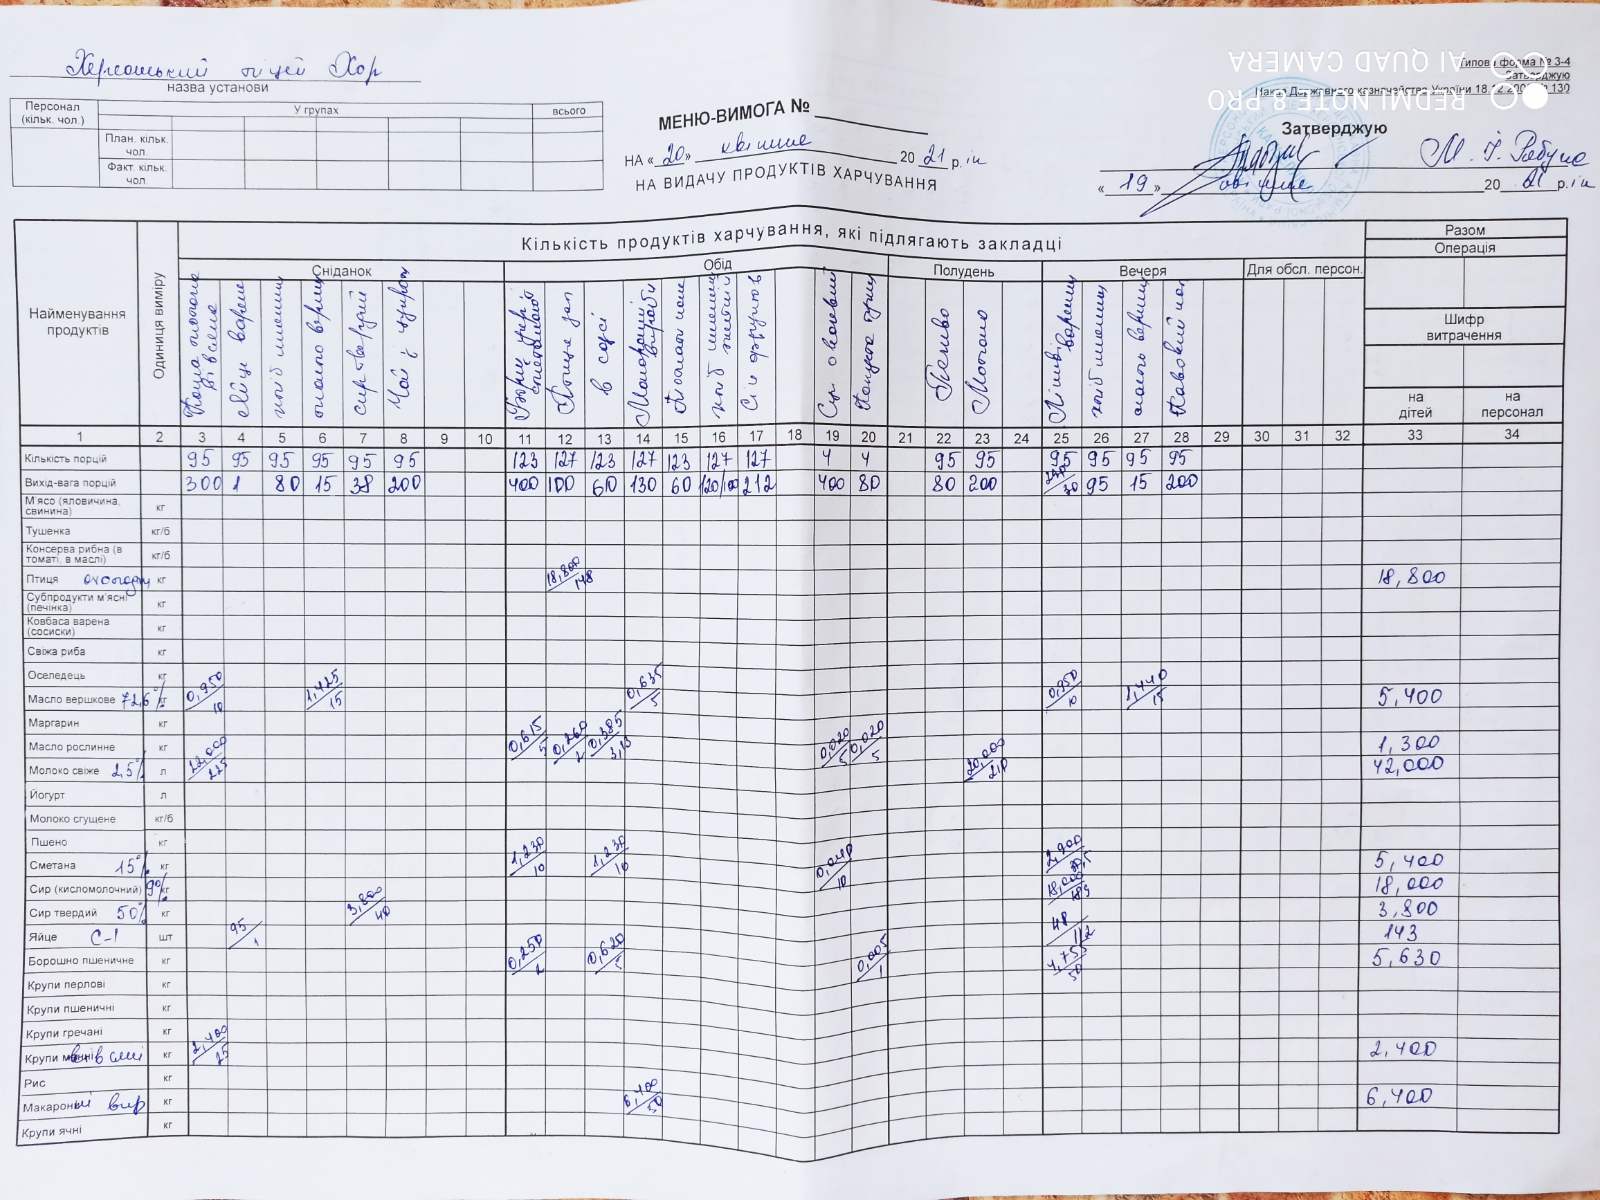 Херсонський ліцей Хор
назва установи
Типова форма № З-4
Затверджую
Наказ Державного казначейства України 18.12.2000 № 130
REDMI NOTE 8 PRO
AI QUAD CAMERA
Персонал (кільк. чол.) У групах всього
План. кільк. чол.
Факт. кільк. чол.
МЕНЮ-ВИМОГА №
НА «20» квітня 2021 р.
НА ВИДАЧУ ПРОДУКТІВ ХАРЧУВАННЯ
Затверджую
«19» 2021 р.
Найменування продуктів
Одиниця виміру
Кількість продуктів харчування, які підлягають закладці
Разом
Операція
Сніданок Обід Полудень Вечеря Для обсл. персон.
Шифр витрачення
на дітей на персонал
Яйце варене
сир твердий
Печиво
Молоко
1 2 3 4 5 6 7 8 9 10 11 12 13 14 15 16 17 18 19 20 21 22 23 24 25 26 27 28 29 30 31 32 33 34
Кількість порцій 95 95 95 95 95 95 123 127 123 127 123 127 127 4 4 95 95 95 95 95 95
Вихід-вага порцій 300 1 80 15 38 200 400 100 60 130 60 120/100 212 400 80 80 200 95 15 200
М'ясо (яловичина, свинина) кг
Тушенка кг/б
Консерва рибна (в томаті, в маслі) кг/б
Птиця кг 18,800/148 18,800
Субпродукти м'ясні (печінка) кг
Ковбаса варена (сосиски) кг
Свіжа риба кг
Оселедець кг
Масло вершкове 72,6% кг 0,950/10 1,425/15 0,635/5 0,950/10 1,440/15 5,400
Маргарин кг
Масло рослинне кг 0,615/5 0,260/2 0,385/3,13 0,020/5 0,020/5 1,300
Молоко свіже 2,5% л 22,000/225 20,000/210 42,000
Йогурт л
Молоко сгущене кг/б
Пшено кг
Сметана 15% кг 1,230/10 1,230/10 0,040/10 2,900/30,5 5,400
Сир (кисломолочний) 9% кг 18,000/189 18,000
Сир твердий 50% кг 3,800/40 3,800
Яйце С-1 шт 95/1 48/1/2 143
Борошно пшеничне кг 0,250/2 0,620/5 0,005/1 4,755/50 5,630
Крупи перлові кг
Крупи пшеничні кг
Крупи гречані кг
Крупи вівсяні кг 2,400/25 2,400
Рис кг
Макаронні вир кг 6,400/50 6,400
Крупи ячні кг